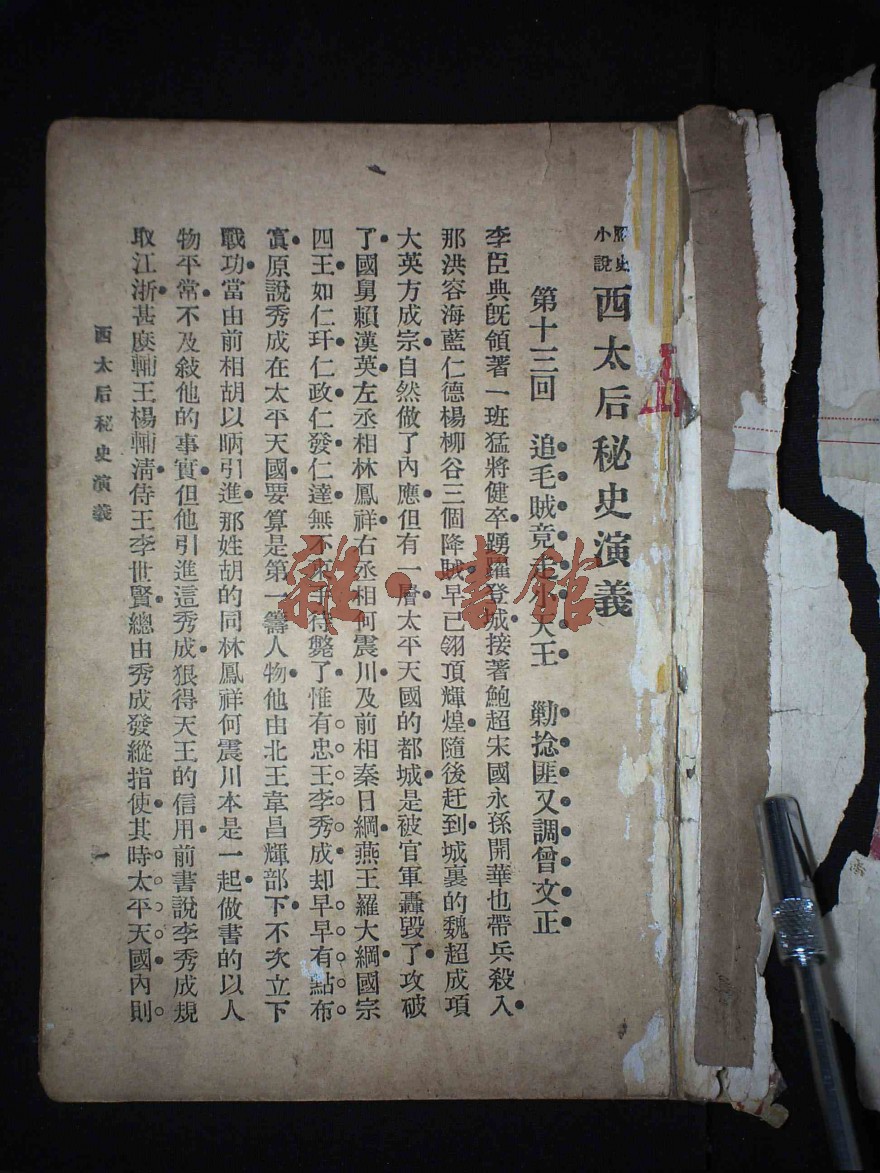 歷史小說
西太后秘史演義
第十三回 追毛賊竟走小天王 勦捻匪又調曾文正
李臣典旣領著一班猛將健卒踴躍登城接著鮑超宋國永孫開華也帶兵殺入
那洪容海藍仁德楊柳谷三個降賊早已翎頂輝煌隨後赶到城裏的魏超成項
大英方成宗自然做了內應但有一層太平天國的都城是被官軍轟毀了攻破
了國舅賴漢英左丞相林鳳祥右丞相何震川及前相秦日綱燕王羅大綱國宗
四王如仁玕仁政仁發仁達無不束手待斃了惟有忠王李秀成却早早有點布
寘原說秀成在太平天國要算是第一籌人物他由北王韋昌輝部下不次立下
戰功當由前相胡以晄引進那姓胡的同林鳳祥何震川本是一起做書的以人
物平常不及敍他的事實但他引進這秀成狠得天王的信用前書說李秀成規
取江浙甚麽輔王楊輔淸侍王李世賢總由秀成發縱指使其時太平天國內則
西太后秘史演義
一
雜·書館